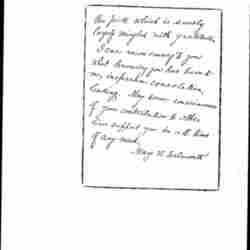 the pride which is surely
largely mingled with gratitude.
I can never convey to you
what knowing you has been to
me, inspiration, consolation,
healing. May some consciousness
of your contribution to other
lives support you in all times
of any need.
Mary W.